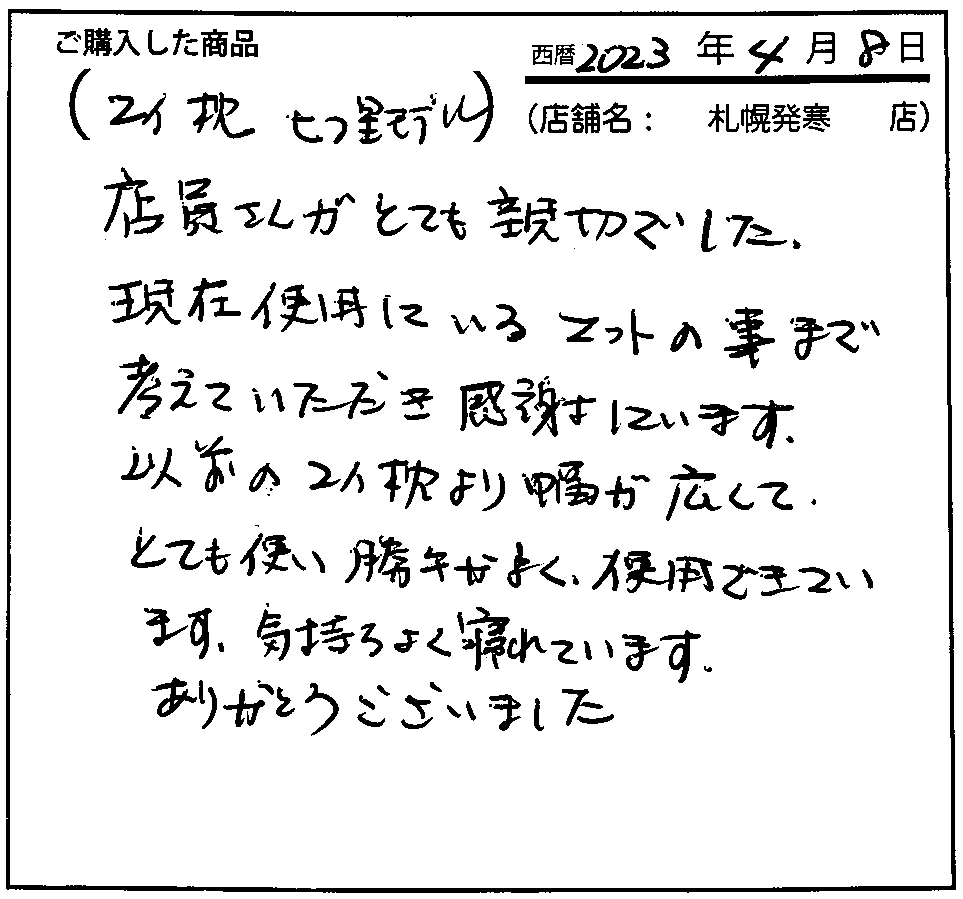 ご購入した商品
西暦2023年4月8日
(2イ枕 七つ星モデル)
(店舗名: 札幌発寒 店)
店員さんがとても親切でした、
現在使用にいるマットの事まで
考えていただき感謝しています、
以前の2イ枕より幅が広くて、
とても使い勝手がよく、使用できてい
ます、気持ちよく寝れています。
ありがとうございました